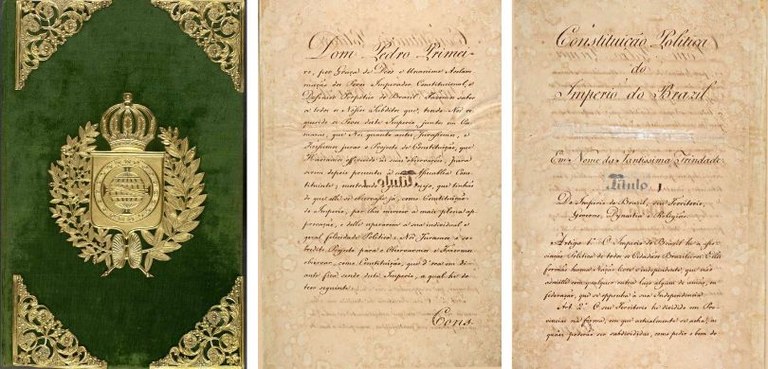 Dom Pedro Primei-
ro, por Graça de Deos e Unanime Acclam-
mação dos Povos Imperador Constitucional, e
Defensor Perpetuo do Brazil: Fazemos saber
a todos os Nossos Subditos que, tendo Nos re-
querido os Povos deste Imperio, juntos em Ca-
maras, que Nós quanto antes Jurassemos, e
Fizessemos jurar o Projecto de Constituição, que
Haviamos offerecido ás suas observações, para
serem depois presentes á nova Assembléa Cons-
tituinte; mostrando o grande desejo, que tinhão
de que elle se observasse já, como Constituição
do Imperio, por lhes merecer a mais plena ap-
provação, e delle esperarem a sua individual, e
geral felicidade Politica: Nós Juramos o so-
bredito Projecto para o Observarmos e Fazermos
observar, como Constituição, que d'ora em di-
ante fica sendo deste Imperio, a qual he do
theor seguinte:
Cons.
Constituição Politica
do
Imperio do Brazil
Em Nome da Santissima Trindade
Titulo 1
Do Imperio do Brazil, seu Territorio,
Governo, Dynastia, e Religião.
Artigo 1º O Imperio do Brazil he a asso-
ciação Politica de todos os Cidadãos Brazileiros. Elles
formão huma Nação livre e independente, que não
admitte com qualquer outra laço algum de união, ou
federação, que se opponha á sua Independencia.
Art. 2º O seu Territorio he dividido em Pro-
vincias na fórma, em que actualmente se acha, as
quaes poderão ser subdivididas, como pedir o bem do